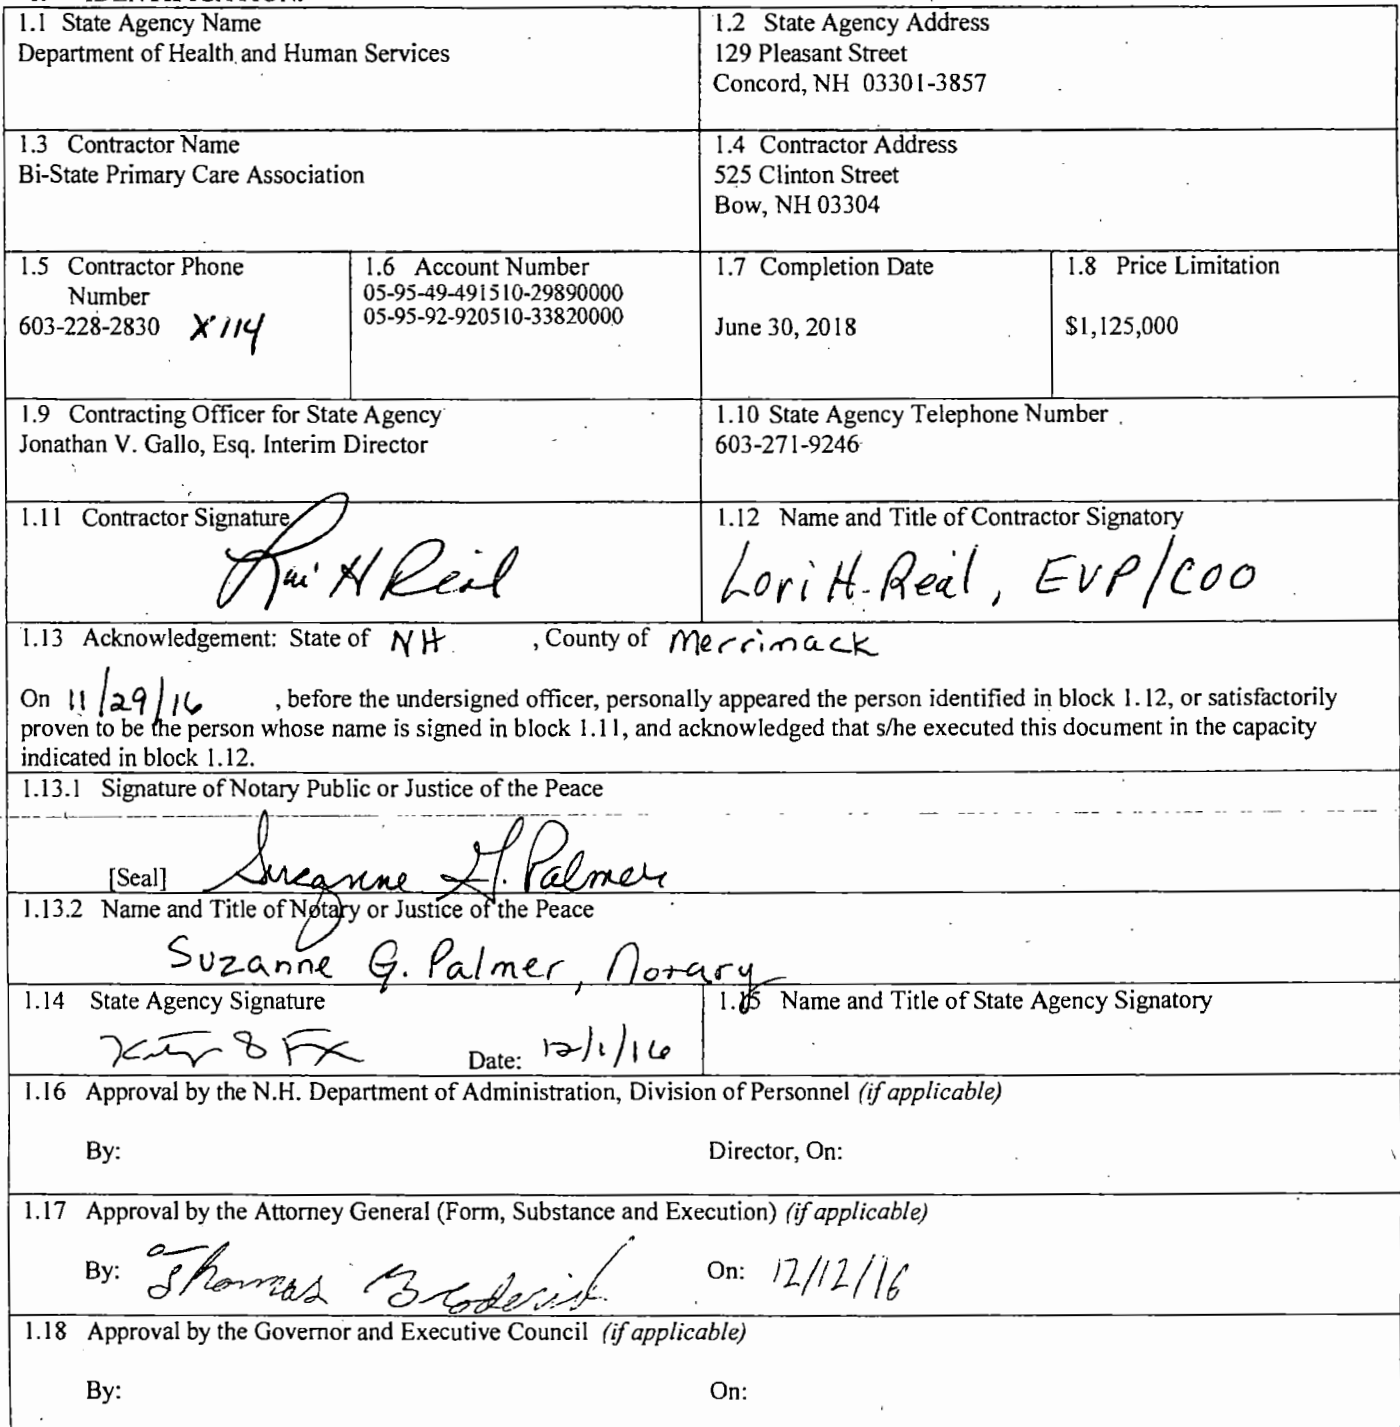 1.1 State Agency Name
Department of Health and Human Services
1.2 State Agency Address
129 Pleasant Street
Concord, NH 03301-3857
1.3 Contractor Name
Bi-State Primary Care Association
1.4 Contractor Address
525 Clinton Street
Bow, NH 03304
1.5 Contractor Phone
Number
603-228-2830 X114
1.6 Account Number
05-95-49-491510-29890000
05-95-92-920510-33820000
1.7 Completion Date
June 30, 2018
1.8 Price Limitation
$1,125,000
1.9 Contracting Officer for State Agency
Jonathan V. Gallo, Esq. Interim Director
1.10 State Agency Telephone Number
603-271-9246
1.11 Contractor Signature
Lori H Real
1.12 Name and Title of Contractor Signatory
Lori H. Real, EVP/COO
1.13 Acknowledgement: State of NH , County of Merrimack
On 11/29/16 , before the undersigned officer, personally appeared the person identified in block 1.12, or satisfactorily
proven to be the person whose name is signed in block 1.11, and acknowledged that s/he executed this document in the capacity
indicated in block 1.12.
1.13.1 Signature of Notary Public or Justice of the Peace
[Seal] Suzanne G. Palmer
1.13.2 Name and Title of Notary or Justice of the Peace
Suzanne G. Palmer, Notary
1.14 State Agency Signature
Date: 12/1/16
1.15 Name and Title of State Agency Signatory
1.16 Approval by the N.H. Department of Administration, Division of Personnel (if applicable)
By: Director, On:
1.17 Approval by the Attorney General (Form, Substance and Execution) (if applicable)
By: Thomas Broderick On: 12/12/16
1.18 Approval by the Governor and Executive Council (if applicable)
By: On: